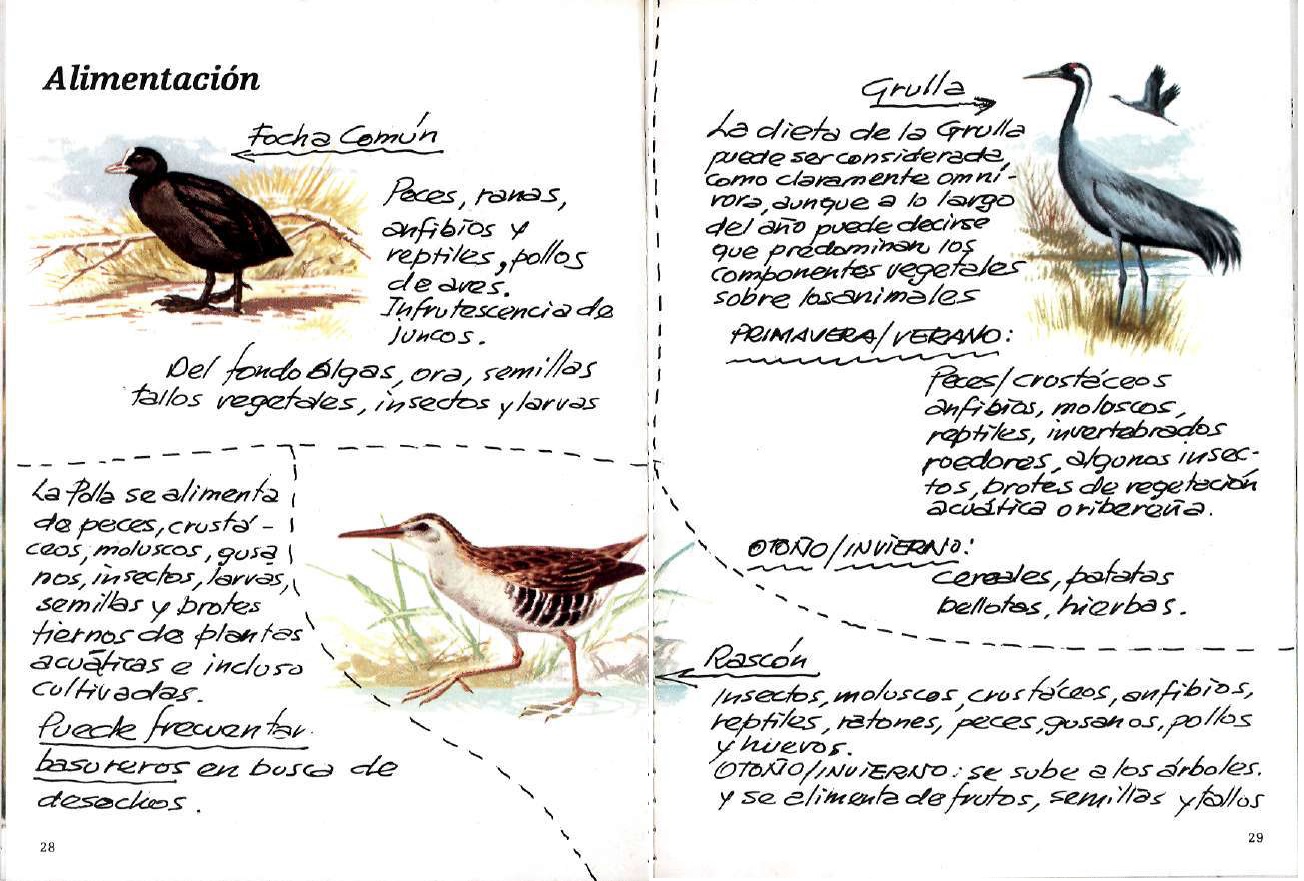 Alimentación
Focha Común
Peces, ranas,
anfibios y
reptiles, pollos
de aves.
Infrutescencia de
Juncos.
Del fondo álgas, ora, semillas
tallos vegetales, insectos y larvas
La Polla se alimenta
de peces, crustá-
ceos, moluscos, gusa
nos, insectos, larvas,
semillas y brotes
tiernos de plantas
acuáticas e incluso
cultivadas.
Puede frecuentar
basureros en busca de
desechos.
28
Grulla
La dieta de la Grulla
puede ser considerada,
como claramente omní-
vora, aunque a lo largo
del año puede decirse
que predominan los
componentes vegetales
sobre los animales
PRIMAVERA/VERANO:
Peces/crostáceos
anfibios, moloscos,
reptiles, invertebrados
roedores, algonos insec-
tos, brotes de vegetación
acuática o ribereña.
OTOÑO/INVIERNO:
cereales, patatas
bellotas, hierbas.
Rascón
Insectos, moluscos, crustáceos, anfibios,
reptiles, ratones, peces, gusanos, pollos
y huevos.
OTOÑO/INVIERNO: se sube a los árboles.
y se alimenta de frutos, semillas y tallos
29